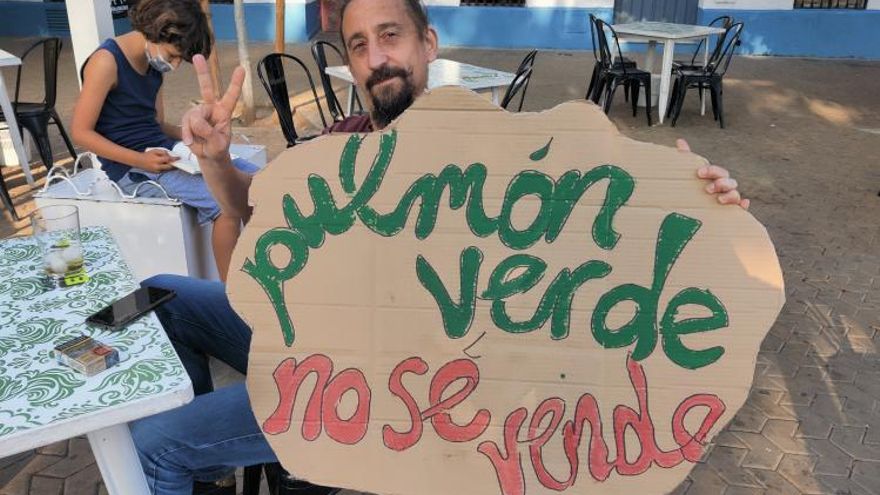 pulmón
verde
no sé vende